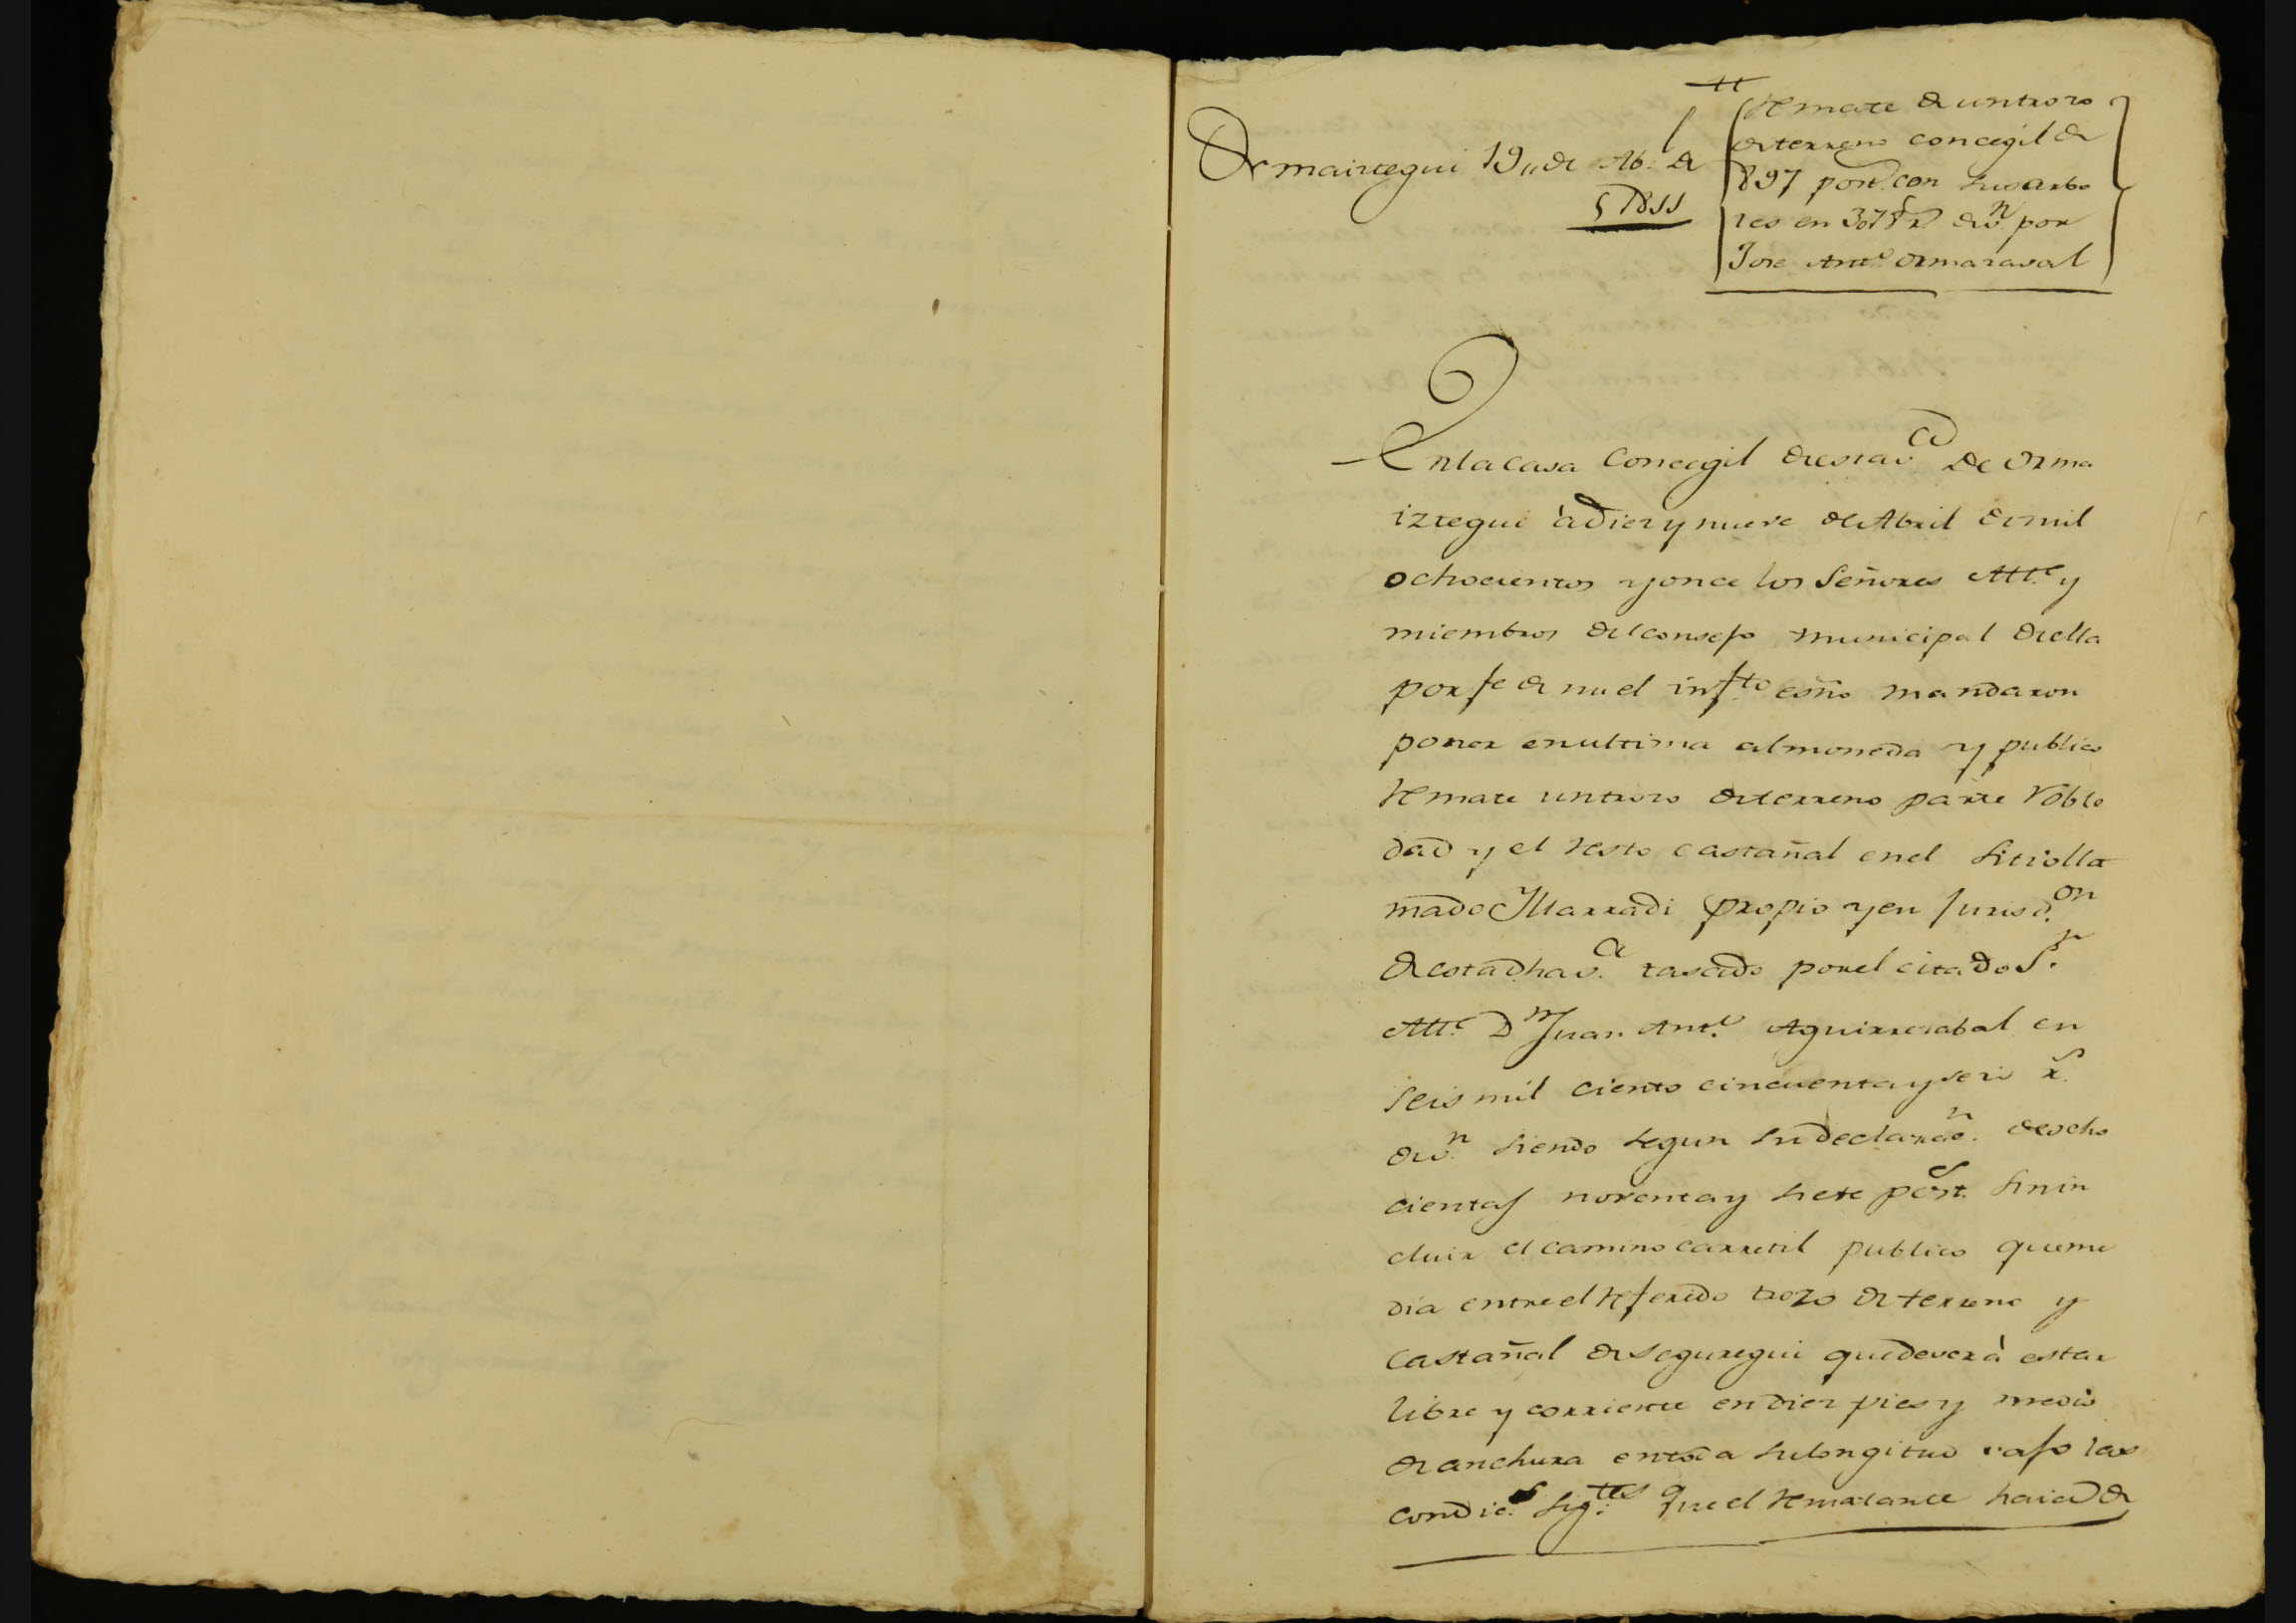 Ormaiztegui 19,, de Ab.l de
1811
Remate de un trozo
de terreno concegil de
897 post.s con sus arbo
res en 3078 r.s de v.n por
Jose Ant.o Ormazaval
En la casa Concegil de esta v.a De Orma
iztegui à diez y nueve de Abril de mil
ochocientos y once los Señores Alt.e y
miembros del consejo municipal de ella
por fe de mi el inf.to esño mandaron
poner en ultima almoneda y publico
Remate un trozo de terreno parte Roble
dad y el resto castañal en el sitio lla
mado Illarradi propio y en jurisd.on
de esta dha v.a tasado por el citado S.r
Alt.e D.n Juan Ant.o Aguirrezabal en
seis mil ciento cincuenta y seis r.s
de v.n siendo segun su declarac.n de ocho
cientas noventa y siete post.s sin in
cluir el camino carretil publico que me
dia entre el referido trozo de terreno y
castañal de Seguregui que deverà estar
libre y corriente en diez pies y medio
de anchura en toda su longitud vajo las
condic.s sig.tes que el Rematante haia de